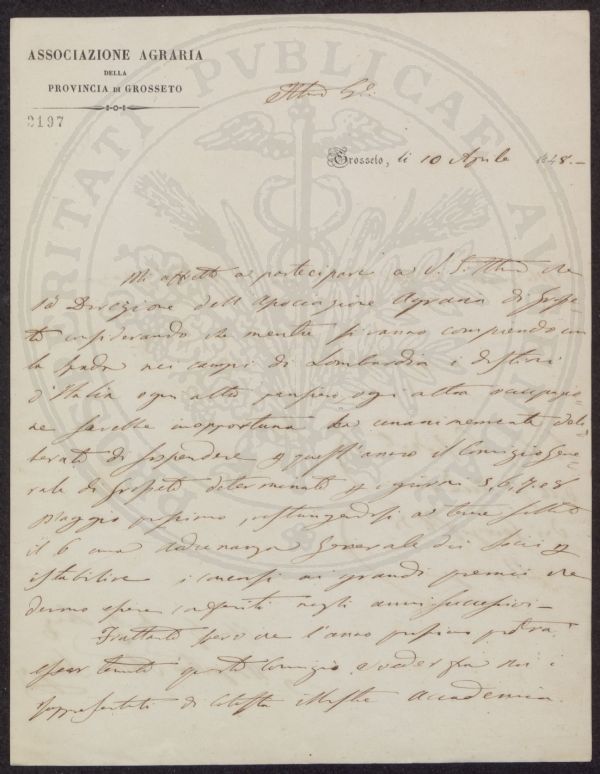 ASSOCIAZIONE AGRARIA
DELLA
PROVINCIA DI GROSSETO
2197
Grosseto, li 10 Aprile 1848.-
PROSPERITATI PVBLICAE AVGENDAE
Mi affretto a partecipare a V. S. Illma che
la Direzione dell Associazione Agraria di Grosse-
to considerando che mentre si vanno compiendo con
la spada nei campi di Lombardia i destini
d'Italia ogni altro pensiero, ogni altra occupazio-
ne sarebbe inopportuna ha unanimemente deli-
berato di sospendere p quest'anno il Comizio Gene-
rale di Grosseto determinato p i giorni 5, 6, 7, e 8
Maggio prossimo, restringendosi a tener soltto
il 6 una Adunanza Generale dei Socj p
istabilire i concorsi ai grandi premii che
dermo essere conferiti negli anni successivi -
Frattanto spero che l'anno prossimo potrà
esser tenuto questo Comizio, e veder fra noi i
rappresentanti di Cotesta Illustre Accademia.